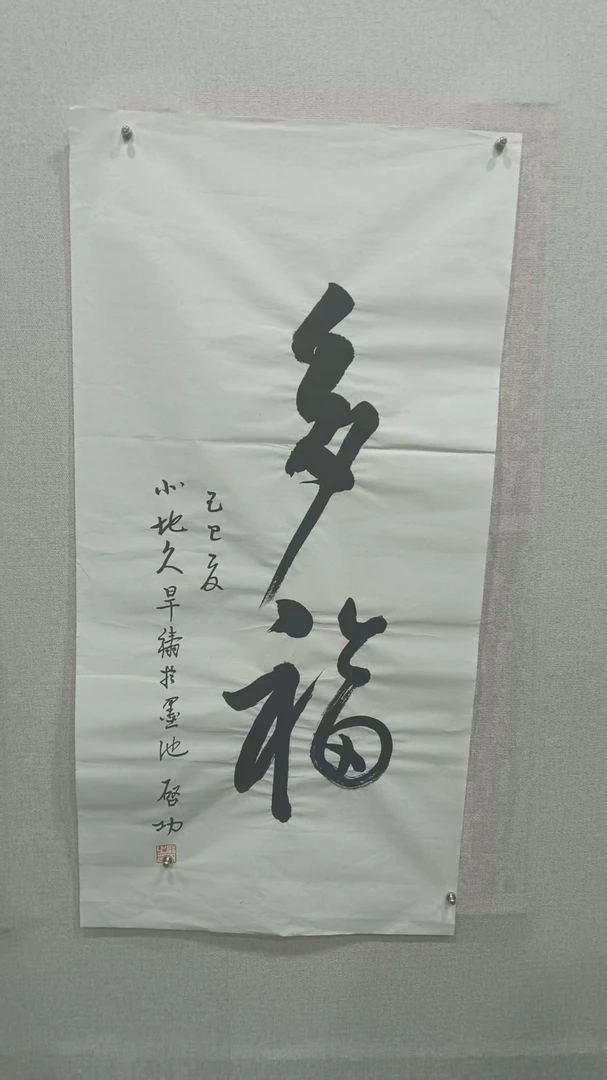 多福
己巳夏
北地久旱禱於墨池 啓功